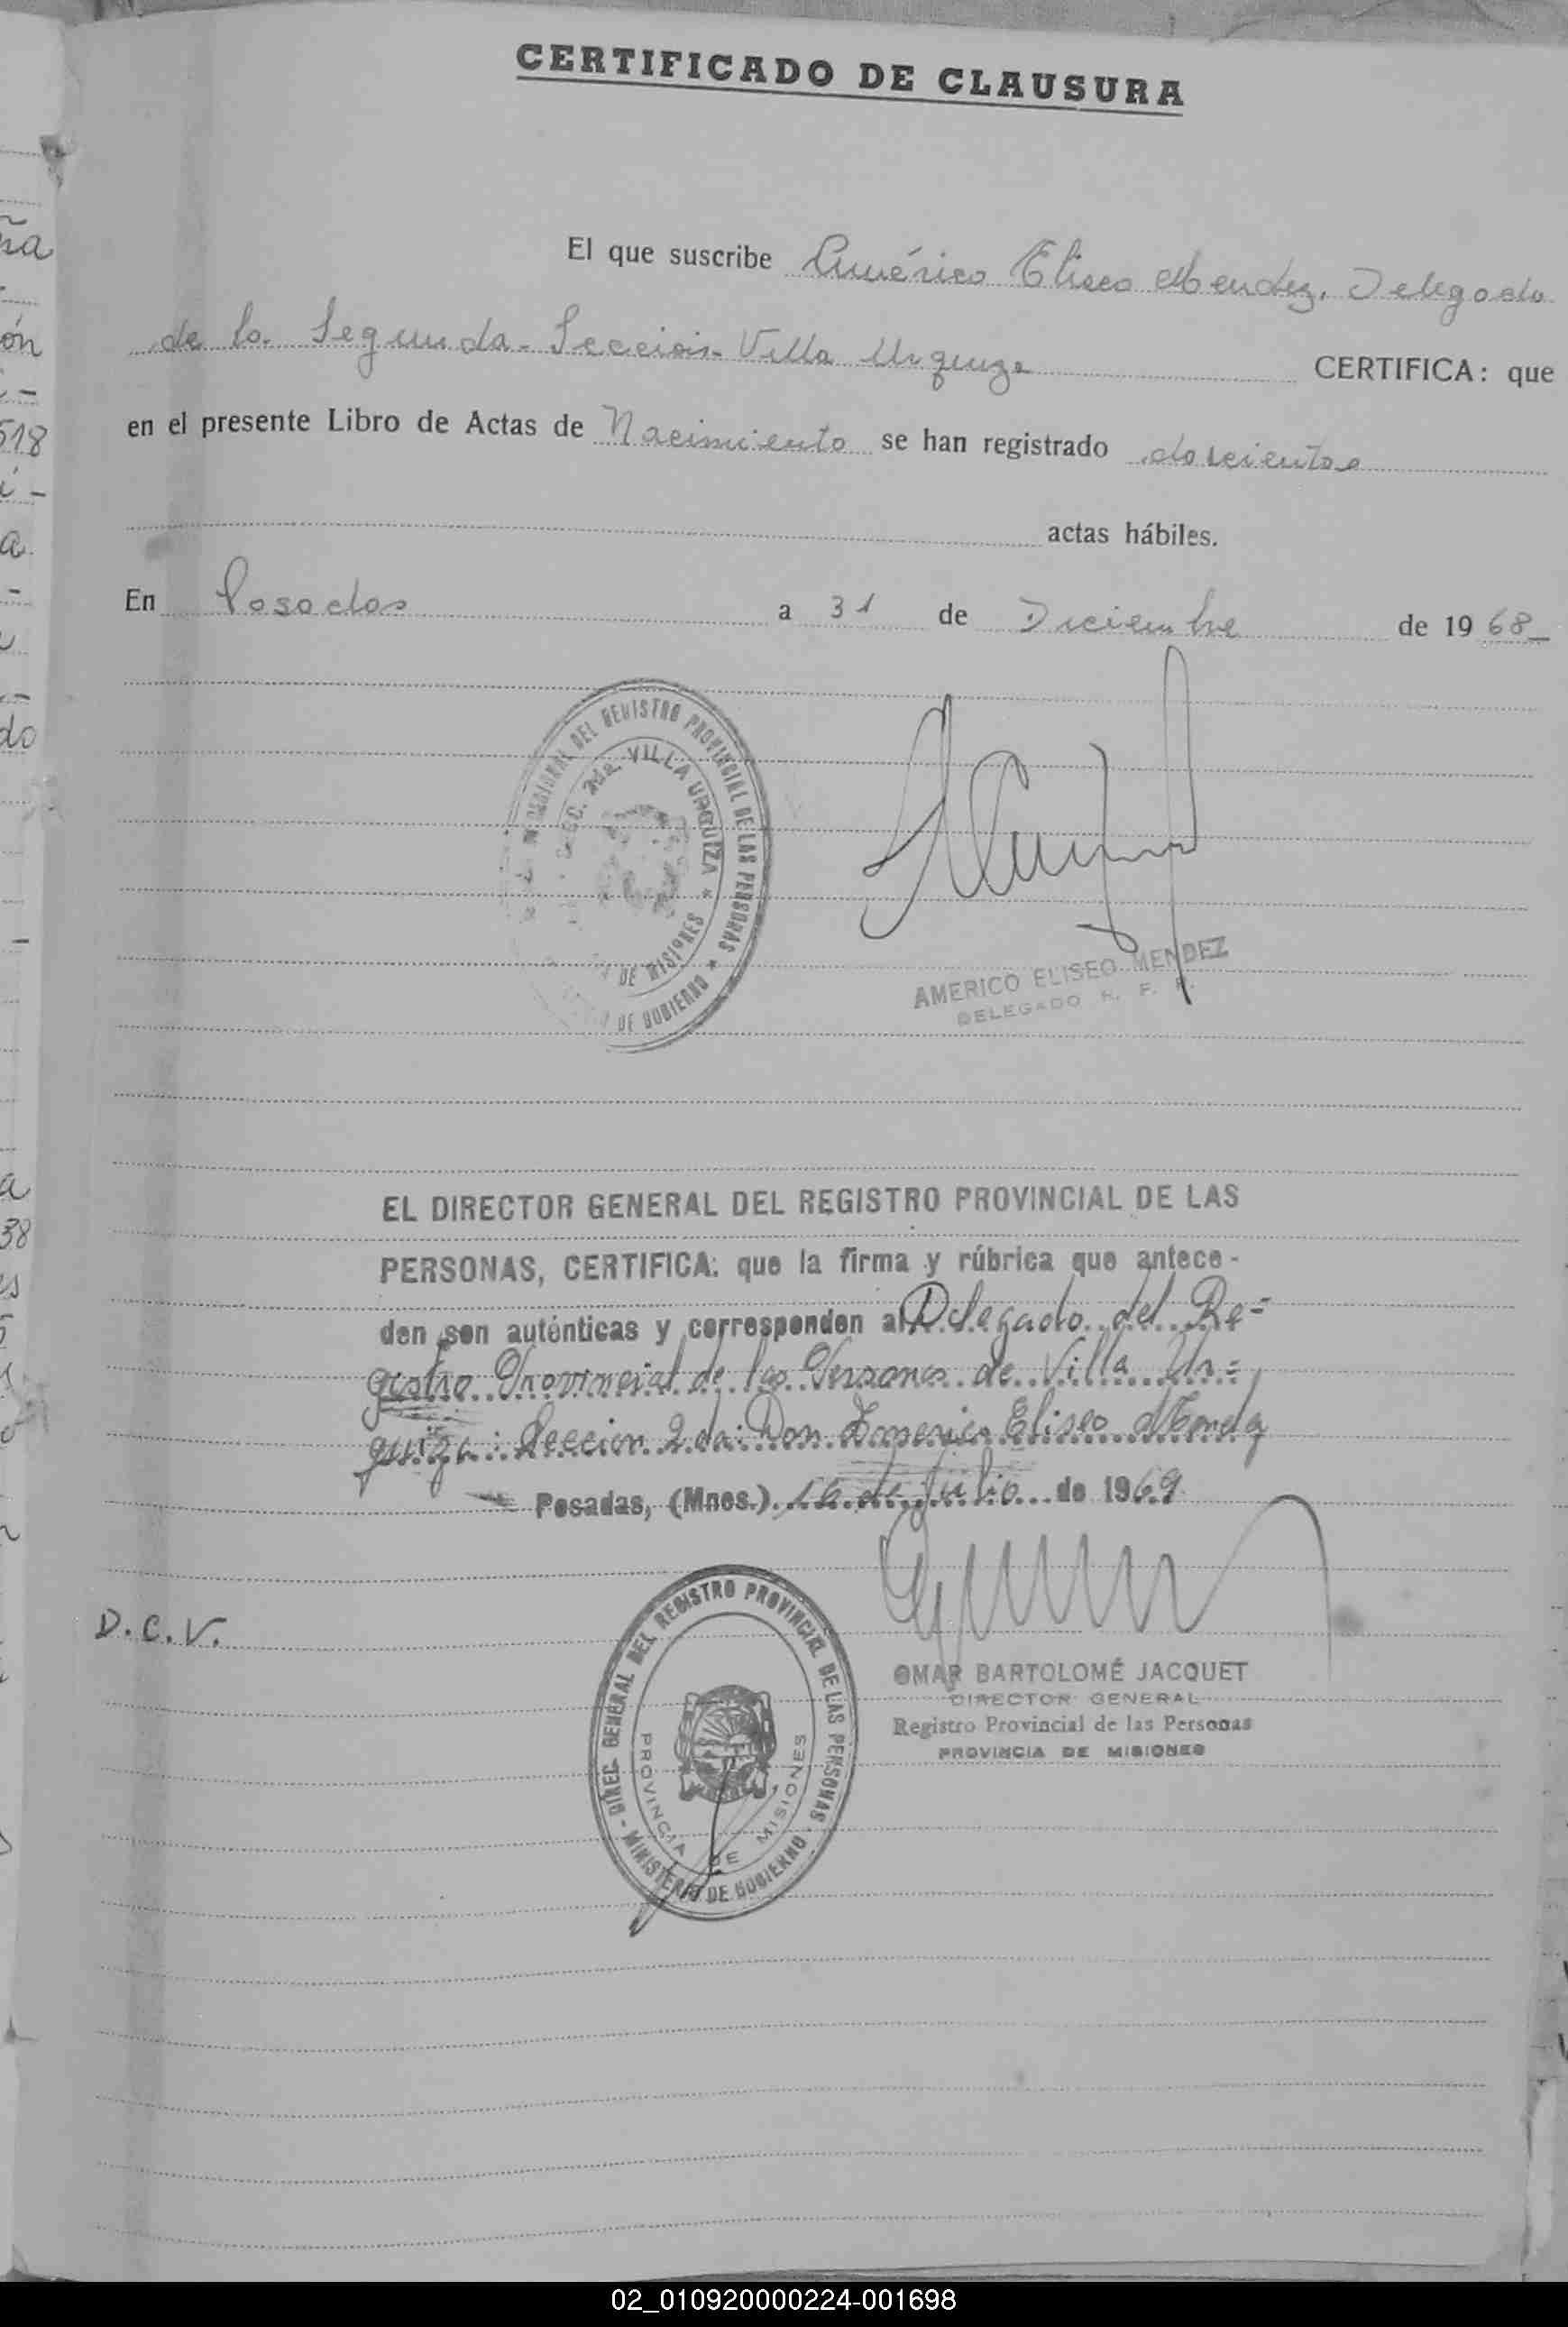 CERTIFICADO DE CLAUSURA
ña
El que suscribe Américo Eliseo Mendez, Delegado
ón
de la Segunda - Sección - Villa Urquiza CERTIFICA: que
518
en el presente Libro de Actas de Nacimiento se han registrado doscientos
a
actas hábiles.
En Posadas a 31 de Diciembre de 1968_
do
REGIONAL DEL REGISTRO PROVINCIAL DE LAS PERSONAS ★ DE GOBIERNO
SEC. 2da. VILLA URQUIZA ★ DE MISIONES
AMERICO ELISEO MENDEZ
DELEGADO
EL DIRECTOR GENERAL DEL REGISTRO PROVINCIAL DE LAS
a
38
PERSONAS, CERTIFICA: que la firma y rúbrica que antece-
den son auténticas y corresponden al Delegado del Re=
gistro Provincial de las Personas de Villa Ur=
quiza: Seccion 2da: Don Americo Eliseo Mendez
Posadas, (Mnes.) 16 de Julio de 1969
D.C.V.
DIREC. GENERAL DEL REGISTRO PROVINCIAL DE LAS PERSONAS - MINISTERIO DE GOBIERNO -
PROVINCIA DE MISIONES
OMAR BARTOLOMÉ JACQUET
DIRECTOR GENERAL
Registro Provincial de las Personas
PROVINCIA DE MISIONES
02_010920000224-001698